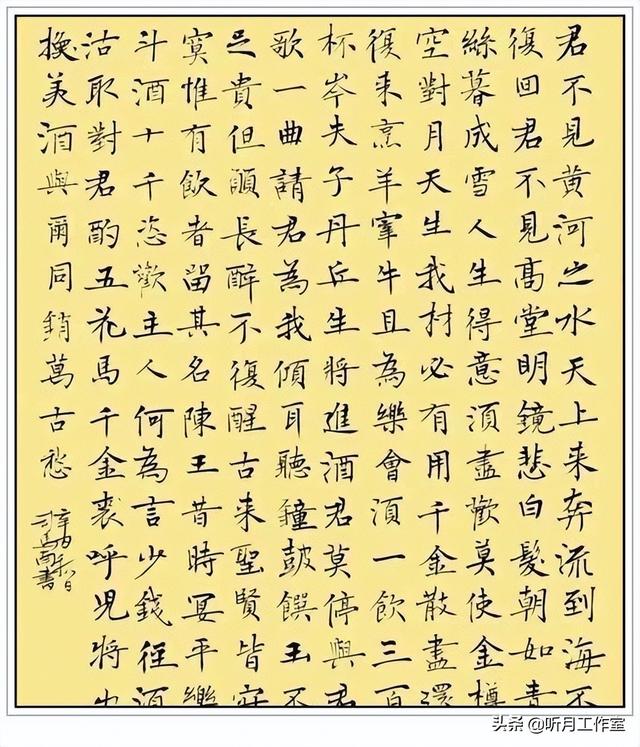 君不見黃河之水天上来奔流到海不
復回君不見高堂明鏡悲白髮朝如青
絲暮成雪人生得意須盡歡莫使金樽
空對月天生我材必有用千金散盡還
復来烹羊宰牛且為樂會須一飲三百
杯岑夫子丹丘生將進酒君莫停與君
歌一曲請君為我傾耳聽鐘鼓饌玉不
足貴但願長醉不復醒古来聖賢皆寂
寞惟有飲者留其名陳王昔時宴平樂
斗酒十千恣歡主人何為言少錢徑須
沽取對君酌五花馬千金裘呼兒將出
換美酒與爾同銷萬古愁
司馬南書
头条 @听月工作室